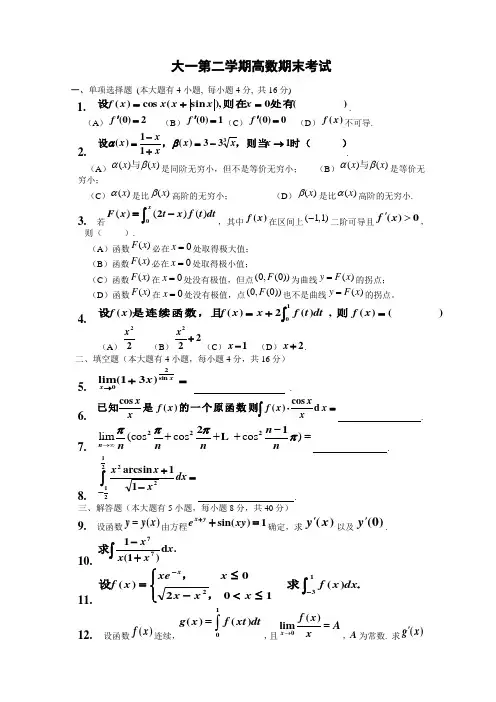 大一第二学期高数期末考试
一、单项选择题 (本大题有4小题, 每小题4分, 共16分)
1. 设f(x) = cos x(x + |sin x|), 则在x = 0处有( ).
(A) f′(0) = 2 (B) f′(0) = 1 (C) f′(0) = 0 (D) f(x)不可导.
2. 设α(x) = (1 − x)/(1 + x), β(x) = 3 − 3∛x, 则当x → 1时( ).
(A) α(x)与β(x)是同阶无穷小，但不是等价无穷小； (B) α(x)与β(x)是等价无
穷小；
(C) α(x)是比β(x)高阶的无穷小； (D) β(x)是比α(x)高阶的无穷小.
3. 若F(x) = ∫₀ˣ (2t − x)f(t)dt，其中f(x)在区间上(−1,1)二阶可导且f′(x) > 0，
则( ).
(A)函数F(x)必在x = 0处取得极大值；
(B)函数F(x)必在x = 0处取得极小值；
(C)函数F(x)在x = 0处没有极值，但点(0, F(0))为曲线y = F(x)的拐点；
(D)函数F(x)在x = 0处没有极值，点(0, F(0))也不是曲线y = F(x)的拐点。
4. 设f(x)是连续函数，且f(x) = x + 2∫₀¹ f(t)dt , 则f(x) = ( )
(A) x²/2 (B) x²/2 + 2 (C) x − 1 (D) x + 2.
二、填空题（本大题有4小题，每小题4分，共16分）
5. lim_{x→0} (1 + 3x)^{2/sin x} = .
6. 已知 cos x/x 是f(x)的一个原函数, 则∫ f(x)·(cos x/x) d x = .
7. lim_{n→∞} π/n (cos² π/n + cos² 2π/n + L + cos² (n − 1)/n π) = .
8. ∫_{−1/2}^{1/2} (x² arcsin x + 1)/√(1 − x²) dx = .
三、解答题（本大题有5小题，每小题8分，共40分）
9. 设函数y = y(x)由方程e^{x+y} + sin(xy) = 1确定，求y′(x)以及y′(0).
10. 求∫ (1 − x⁷)/(x(1 + x⁷)) dx.
11. 设f(x) = { xe^{−x}， x ≤ 0; √(2x − x²)， 0 < x ≤ 1 求∫_{−3}^{1} f(x)dx.
12. 设函数f(x)连续，g(x) = ∫₀¹ f(xt)dt，且lim_{x→0} f(x)/x = A，A为常数. 求g′(x)